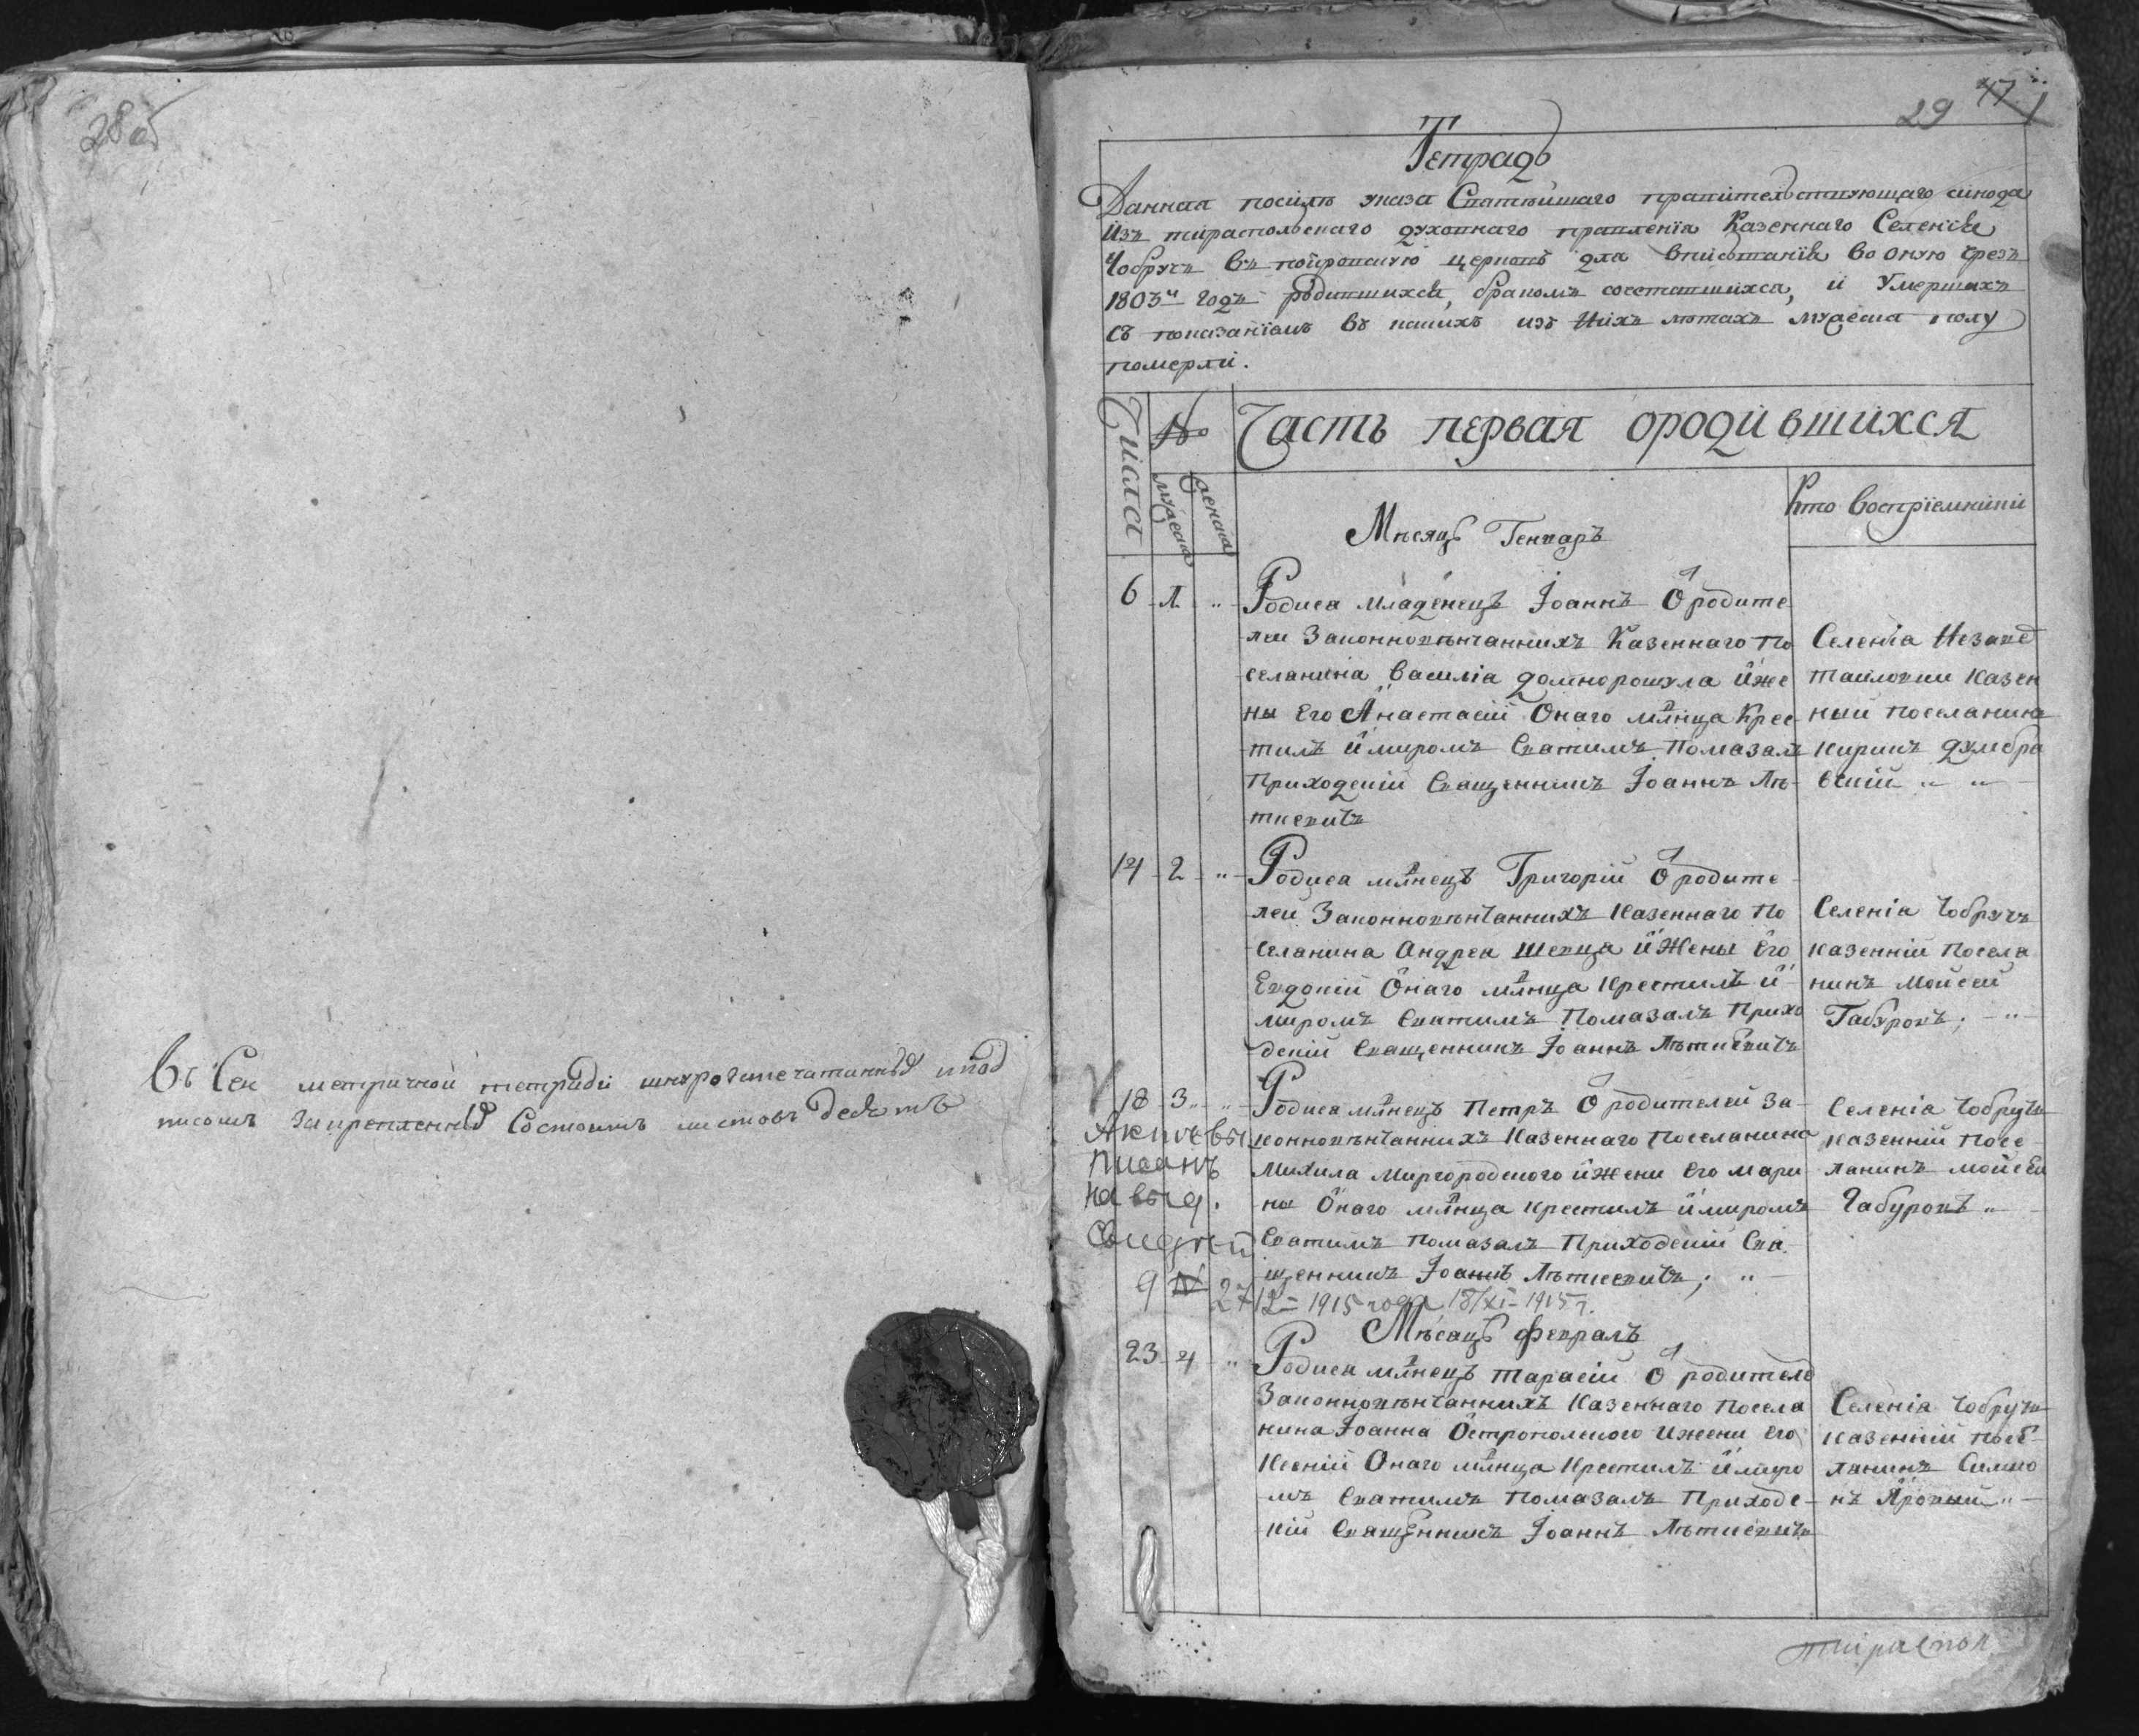 28 об
Въ сей метричной тетради шнурозапечатанной и под
писомъ закрепленной Состоитъ листовъ десять
29 47
Тетрадь
Данная посилѣ указа Святѣйшаго правительствующаго синода
Изъ тираспольскаго духовнаго правленія Казеннаго Селенія
Чобручъ въ покровскую церковь для вписыванія во оную чрезъ
1803й годъ родившихся, бракомъ сочетавшихся, и Умершихъ
съ показаніемъ въ какихъ изъ нихъ лѣтахъ мужеска полу
померли.
Числа
№
Часть первая ородившихся
мужеска
женска
Мѣсяцъ Генваръ
Кто Воспріемники
6 1 " Родися младенецъ Іоаннъ Ѿ родите
лей Законновѣнчаннихъ Казеннаго По
селанина Василіа Домнорошула и же
ны Его Анастасіи Онаго млнца Крес
тилъ и миромъ Святимъ Помазалъ
Приходскій Священникъ Іоаннъ Лѣ-
ткевичъ
Селеніа Незаве
тайловки Казен
ный поселанинъ
Кирикъ Думбра
вскій " "
14 2 " Родися млнецъ Григорій Ѿ родите
лей Законновѣнчаннихъ Казеннаго По
Селанина Андрея Шевца и Жены Его
Евдокіи Онаго млнца Крестилъ и
миромъ Святимъ Помазалъ Прихо
дскій Священникъ Іоаннъ Лѣткевичъ
Селеніа Чобручъ
казенній Посела
нинъ Мойсей
Габуровъ; "
18 3 " Родися млнецъ Петръ Ѿ родителей За
конновѣнчаннихъ Казеннаго Поселанина
Михила Миргородского и Жени Его Мари
ны Онаго млнца Крестилъ и миромъ
Святимъ Помазалъ Приходскій Свя
щенникъ Іоаннъ Лѣткевичъ; "
Селеніа Чобручъ
казенній Посе
ланинъ Мойсей
Габуровъ "
Акт вы
писанъ
на выд.
9 № 2712 = 1915 года 18/XI-1915 г.
Мѣсацъ Февралъ
23 4 " Родися млнецъ Тарасій Ѿ родителе
Законновѣнчаннихъ Казеннаго Посела
нина Іоанна Острополского И жени Его
Ксеніи Онаго млнца Крестилъ и миро
мъ Святимъ Помазалъ Приходс
кій Священникъ Іоаннъ Лѣткевичъ
Селеніа Чобручъ
казенній Посе
ланинъ Симио
нъ Яровий "
тираспол